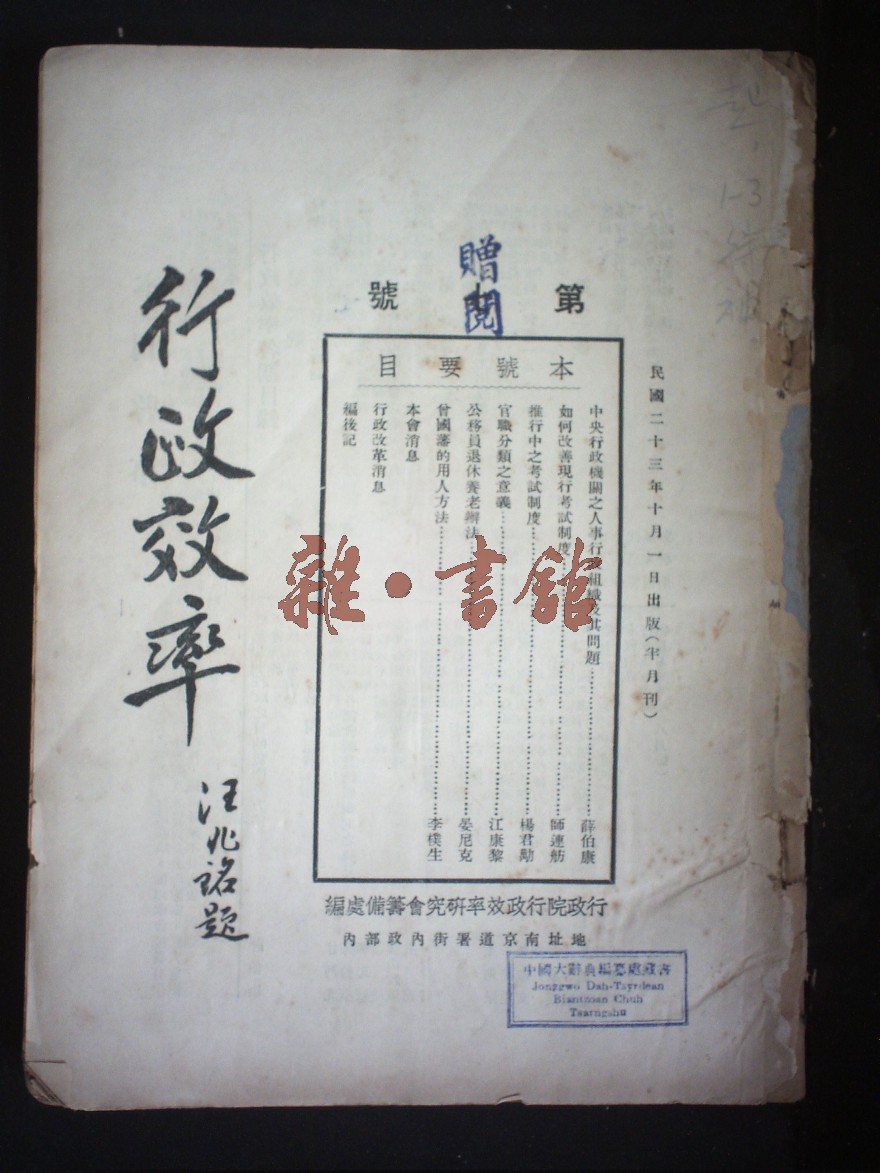 民國二十三年十月一日出版(半月刊)
第 號
贈閱
本號要目
中央行政機關之人事行 組織及其問題 薛伯康
如何改善現行考試制度 師連舫
推行中之考試制度 楊君勱
官職分類之意義 江康黎
公務員退休養老辦法 晏尼克
曾國藩的用人方法 李樸生
本會消息
行政改革消息
編後記
行政院行政效率研究會籌備處編
地址南京道署街內政部內
行政效率
汪兆銘題
雜·書館
中國大辭典編纂處藏書
Jonggwo Dah-Tsyrdean
Biantzoan Chuh
Tsarngshu
1-3